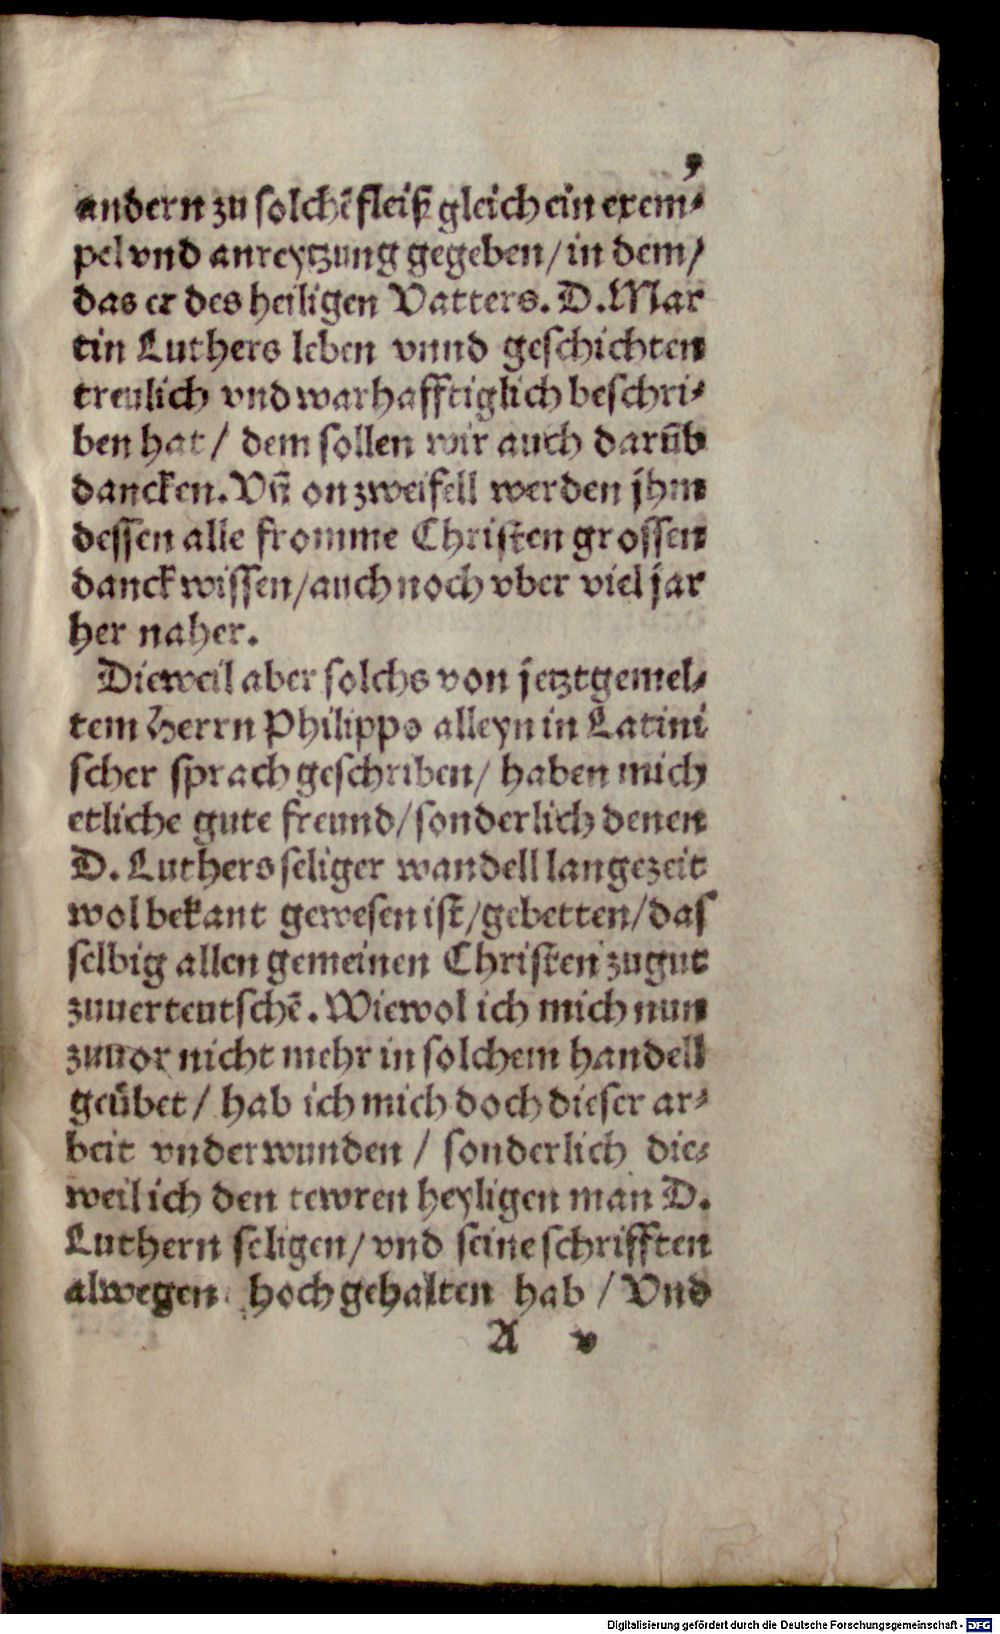 9
andern zu solchē fleiß gleich ein exem⸗
pel vnd anreytzung gegeben / in dem /
das er des heiligen Vatters. D. Mar
tin Luthers leben vnnd geschichten
treulich vnd warhafftiglich beschri⸗
ben hat / dem sollen wir auch darūb
dancken. Vn̄ on zweifell werden jhm
dessen alle fromme Christen grossen
danck wissen / auch noch vber viel jar
her naher.
Dieweil aber solchs von jetztgemel⸗
tem Herrn Philippo alleyn in Latini
scher sprach geschriben / haben mich
etliche gute freund / sonderlich denen
D. Luthers seliger wandell langezeit
wol bekant gewesen ist / gebetten / das
selbig allen gemeinen Christen zugut
zuuerteutschē. Wiewol ich mich nun
zuuor nicht mehr in solchem handell
geübet / hab ich mich doch dieser ar⸗
beit vnderwunden / sonderlich die⸗
weil ich den tewren heyligen man D.
Luthern seligen / vnd seine schrifften
alwegen hoch gehalten hab / Vnd
A v
Digitalisierung gefördert durch die Deutsche Forschungsgemeinschaft - DFG